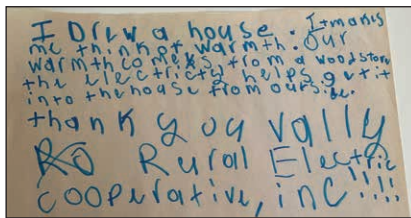 I Drew a house. It makes
me think of warmth. Our
warmth comes from a woodstove
the electricty helps get it
into the house from oursibe.
thank you vally
Rural Electric
cooperative, inc!!!!